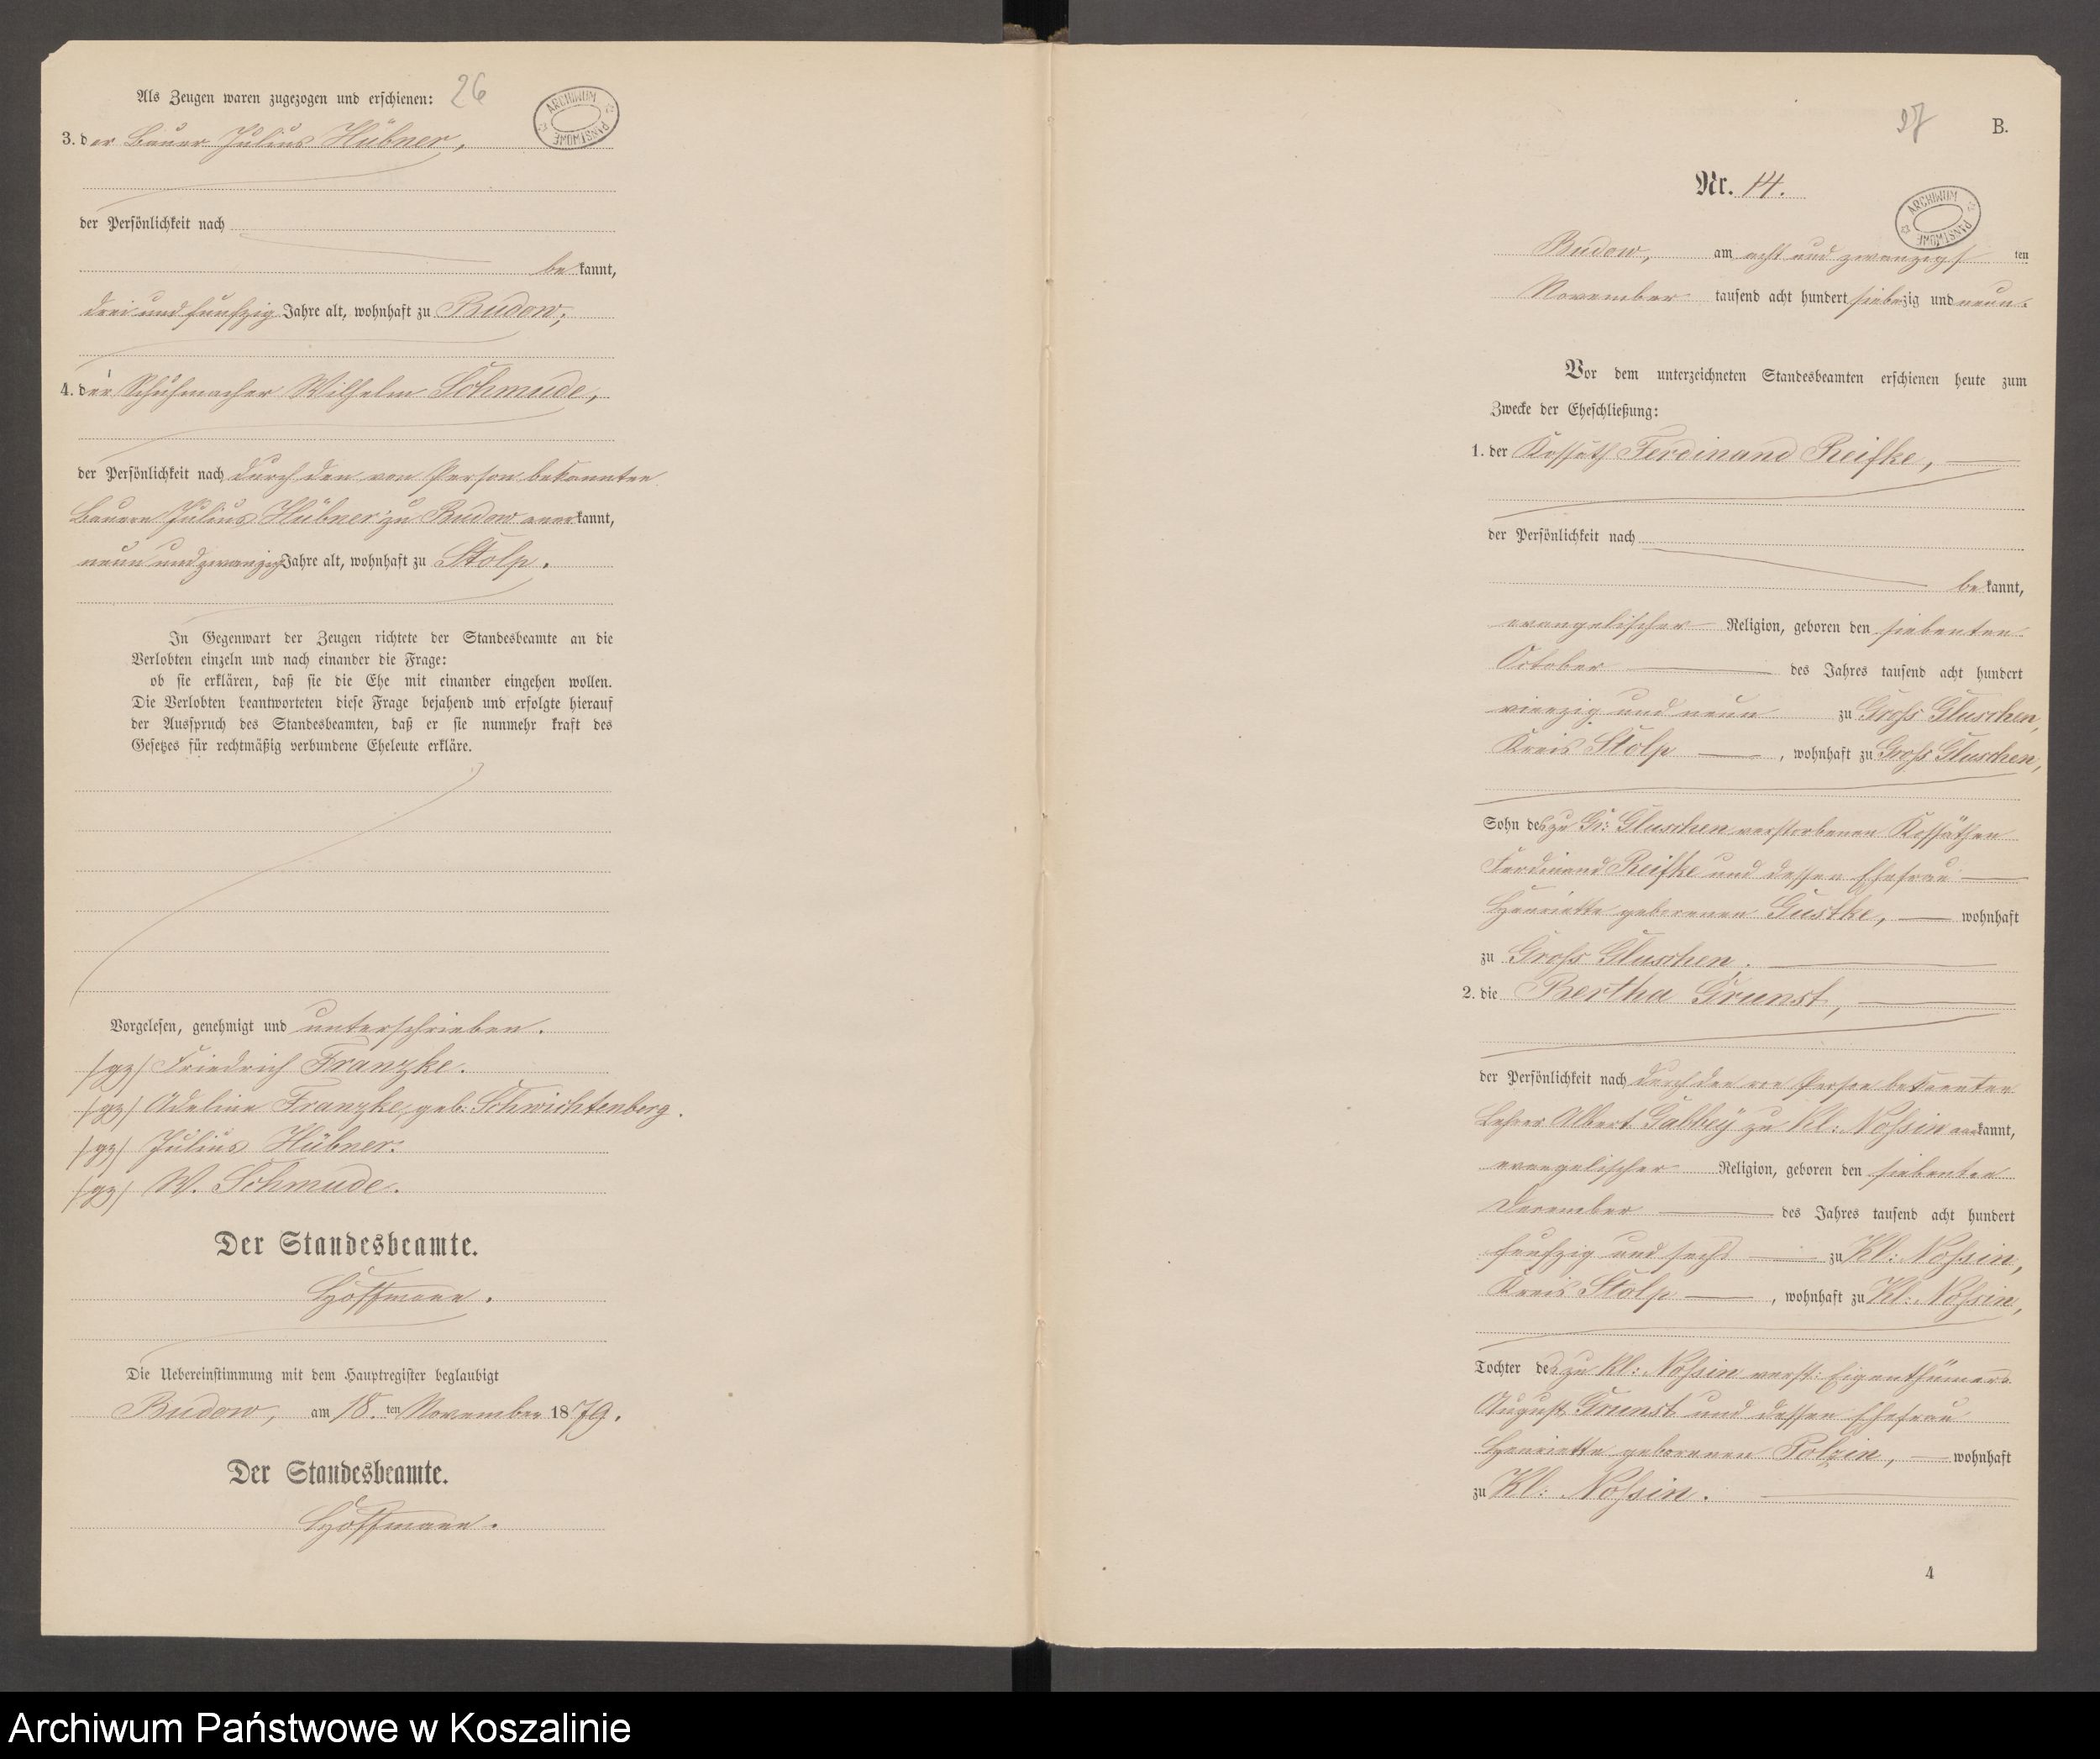 Als Zeugen waren zugezogen und erschienen: 26
ARCHIWUM PAŃSTWOWE
3. der Bauer Julius Hübner,
der Persönlichkeit nach
bekannt,
drei und funfzig Jahre alt, wohnhaft zu Budow,
4. der Schuhmacher Wilhelm Schmude,
der Persönlichkeit nach durch den von Person bekannten
Bauern Julius Hübner zu Budow anerkannt,
neun und zwanzig Jahre alt, wohnhaft zu Stolp.
In Gegenwart der Zeugen richtete der Standesbeamte an die
Verlobten einzeln und nach einander die Frage:
ob sie erklären, daß sie die Ehe mit einander eingehen wollen.
Die Verlobten beantworteten diese Frage bejahend und erfolgte hierauf
der Ausspruch des Standesbeamten, daß er sie nunmehr kraft des
Gesetzes für rechtmäßig verbundene Eheleute erkläre.
Vorgelesen, genehmigt und unterschrieben.
/gz/ Friedrich Franzke.
/gz/ Adeline Franzke, geb: Schwichtenberg.
/gz/ Julius Hübner.
/gz/ W. Schmude.
Der Standesbeamte.
Hoffmann.
Die Uebereinstimmung mit dem Hauptregister beglaubigt
Budow, am 18.ten November 1879.
Der Standesbeamte.
Hoffmann.
27 B.
Nr. 14.
ARCHIWUM PAŃSTWOWE
Budow, am acht und zwanzigsten
November tausend acht hundert siebenzig und neun.
Vor dem unterzeichneten Standesbeamten erschienen heute zum
Zwecke der Eheschließung:
1. der Kossath Ferdinand Reifke,
der Persönlichkeit nach
bekannt,
evangelischer Religion, geboren den siebenten
October des Jahres tausend acht hundert
vierzig und neun zu Gross Gluschen,
Kreis Stolp, wohnhaft zu Gross Gluschen,
Sohn des zu Gr: Gluschen verstorbenen Kossäthen
Ferdinand Reifke und dessen Ehefrau
Henriette geborenen Gustke, wohnhaft
zu Gross Gluschen.
2. die Bertha Grunst,
der Persönlichkeit nach durch den von Person bekannten
Lehrer Albert Gabbey zu Kl: Nossin anerkannt,
evangelischer Religion, geboren den siebenten
December des Jahres tausend acht hundert
funfzig und sechs zu Kl: Nossin,
Kreis Stolp, wohnhaft zu Kl: Nossin,
Tochter des zu Kl: Nossin verst: Eigenthümers
August Grunst und dessen Ehefrau
Henriette geborenen Polzin, wohnhaft
zu Kl: Nossin.
4
Archiwum Państwowe w Koszalinie